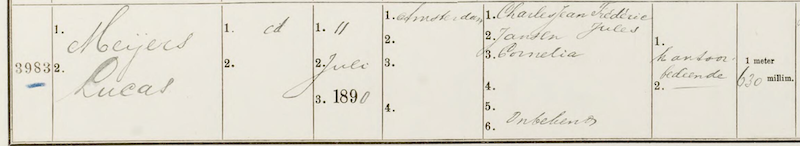 3983
1. Meijers
2. Lucas
1. cd
2.
1. 11
2. Juli
3. 1890
1. Amsterdam
2.
3.
4.
1. Charles Jean Frédéric
Jules
2. Jansen
3. Cornelia
4.
5.
6. Onbekend
1. kantoor-
bediende
2.
1 meter
630 millim.